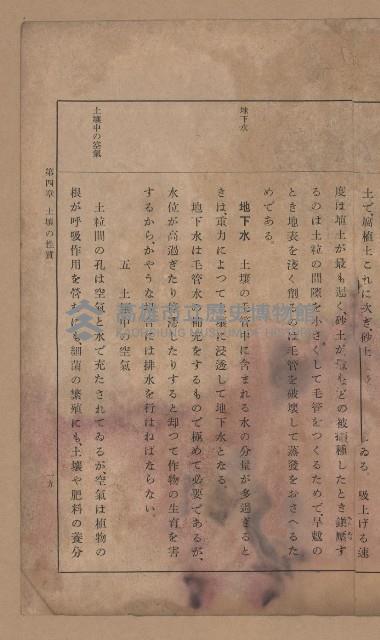 土で、腐植土これに次ぎ砂土 ゐる。 吸上げる速
度は埴土が最も遲く、砂土が などの被 種したとき鎭壓す
るのは土粒の間隙を小さくして毛管をつくるためで早魃の
とき地表を淺く削るのは毛管を破壞して蒸發をおさへるた
めである。
地下水
地下水 土壤の毛管中に含まれる水の分量が多過ぎると
きは、重力によつて 壤に浸透して地下水となる。
地下水は毛管水を補充をするもので極めて必要であるが、
水位が高過ぎたり したりすると却つて作物の生育を害
するから、かやうな 合には排水を行はねばならない。
五 土 の空氣
土壤中の空氣
土粒間の孔は空氣と水で充たされてゐるが、空氣は植物の
根が呼吸作用を營むにも細菌の繁殖にも、土壤や肥料の養分
第四章 土壤の性質
一五
高雄市立歷史博物館
KAOHSIUNG MUSEUM OF HISTORY